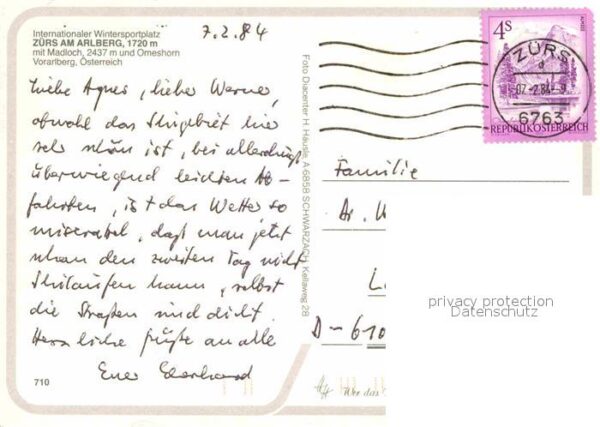 Internationaler Wintersportplatz
ZÜRS AM ARLBERG, 1720 m
mit Madloch, 2437 m und Omeshorn
Vorarlberg, Österreich
7.2.84
Liebe Agnes, lieber Werner,
obwohl das Skigebiet hier
sehr schön ist, bei allerdings
überwiegend leichten Ab-
fahrten, ist das Wetter so
miserabel, daß man jetzt
schon den zweiten Tag nicht
Skilaufen kann, selbst
die Straßen sind dicht.
Herzliche Grüße an alle
Euer Eberhard
710
Foto Diacenter H. Häusle, A-6858 SCHWARZACH, Kellaweg 28
4S
REPUBLIK ÖSTERREICH
ZÜRS
a
07.-2.84-9
6763
Familie
Dr. W
L
D-610
privacy protection
Datenschutz
Wer das